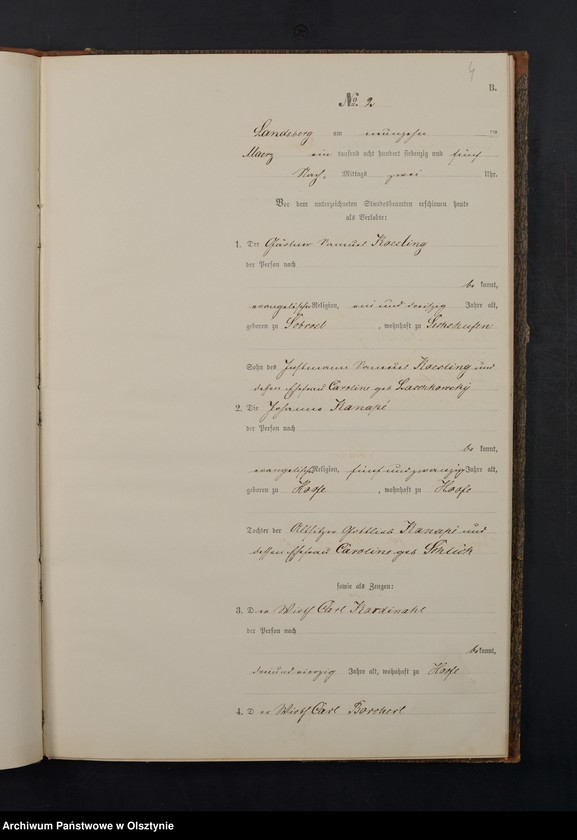 4
B.
No. 2
Landsberg am neunzehn ten
Maerz ein tausend acht hundert siebenzig und fünf
Nach Mittags zwei Uhr.
Vor dem unterzeichneten Standesbeamten erschienen heute
als Verlobte:
1. Der Gärtner Samuel Koesling
der Person nach
be kannt,
evangelischer Religion, ein und dreißig Jahre alt,
geboren zu , wohnhaft zu
Sohn des Instmann Samuel Koesling und
dessen Ehefrau Caroline geb Laschkowsky
2. Die Johanna Kanapé
der Person nach
be kannt,
evangelischer Religion, fünf und zwanzig Jahre alt,
geboren zu Hoofe , wohnhaft zu Hoofe
Tochter der Altsitzer Gottlieb Kanapé und
dessen Ehefrau Caroline geb Schlick
sowie als Zeugen:
3. D er Wirth Carl Kardinahl
der Person nach
be kannt,
dreiundvierzig Jahre alt, wohnhaft zu Hoofe
4. D er Wirth Carl Borchert
Archiwum Państwowe w Olsztynie